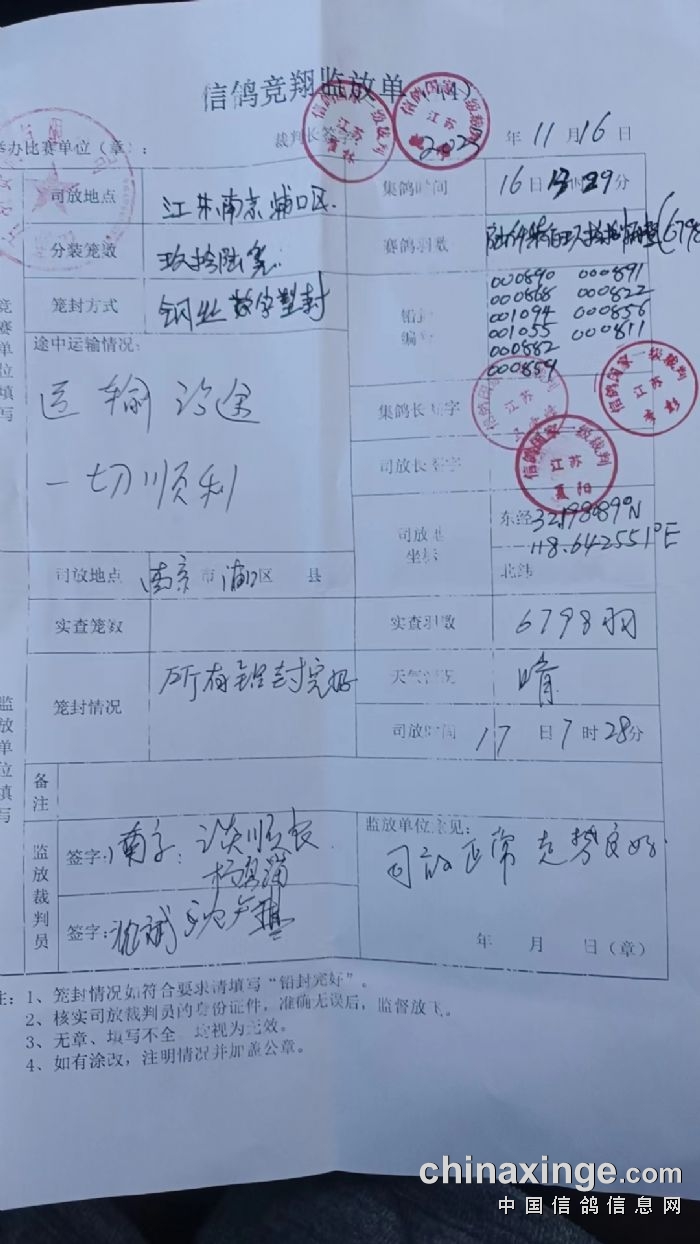 信鸽竞翔监放单（1）
举办比赛单位（章）：
裁判长签
2025 年 11 月 16 日
司放地点 江苏南京浦口区
集鸽时间 16日 时29分
分装笼数 玖拾陆笼
赛鸽羽数
笼封方式 钢丝数字塑封
铅封编号
000890 000891
000868 000822
001094 000856
001055 000811
000882
000859
途中运输情况：
运输沿途
一切顺利
集鸽长签字
司放长签字
司放地坐标
东经 32.198089°N
118.642551°E
北纬
司放地点 南京市浦口区 县
实查笼数
实查羽数 6798羽
笼封情况 所有铅封完好
天气情况 晴
司放时间 17日7时28分
备注
监放裁判员
签字：南京：
签字：
监放单位意见：
司放正常 走势良好
年 月 日（章）
竞赛单位填写
监放单位填写
注：1、笼封情况如符合要求请填写“铅封完好”。
2、核实司放裁判员的身份证件，准确无误后，监督放飞。
3、无章、填写不全 视为无效。
4、如有涂改，注明情况并加盖公章。
信鸽国家一级裁判
江苏
信鸽国家一级裁判
江苏
信鸽国家一级裁判
江苏
信鸽国家一级裁判
江苏
信鸽国家一级裁判
江苏
夏阳
chinaxinge.com
中国信鸽信息网